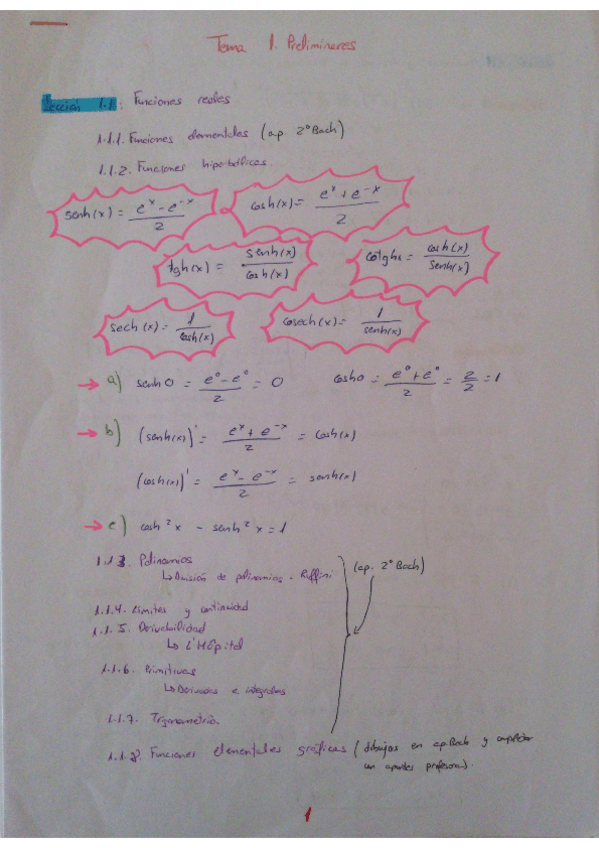 Tema 1. Preliminares
Sección 1.1: Funciones reales
1.1.1. Funciones elementales (ap. 2º Bach)
1.1.2. Funciones hiperbólicas.
senh(x) = (e^x - e^-x)/2
cosh(x) = (e^x + e^-x)/2
tgh(x) = senh(x)/cosh(x)
cotghx = cosh(x)/senh(x)
sech(x) = 1/cosh(x)
cosech(x) = 1/senh(x)
→ a) senh0 = (e^0 - e^0)/2 = 0 cosh0 = (e^0 + e^0)/2 = 2/2 = 1
→ b) (senh(x))' = (e^x + e^-x)/2 = cosh(x)
(cosh(x))' = (e^x - e^-x)/2 = senh(x)
→ c) cosh²x - senh²x = 1
1.1.3. Polinomios
↳ División de polinomios - Ruffini
(ap. 2º Bach)
1.1.4. Límites y continuidad
1.1.5. Derivabilidad
↳ L'Hôpital
1.1.6. Primitivas
↳ Derivadas e integrales
1.1.7. Trigonometría
1.1.8. Funciones elementales gráficas (dibujos en ap. Bach y completar
con apuntes profesora).
1